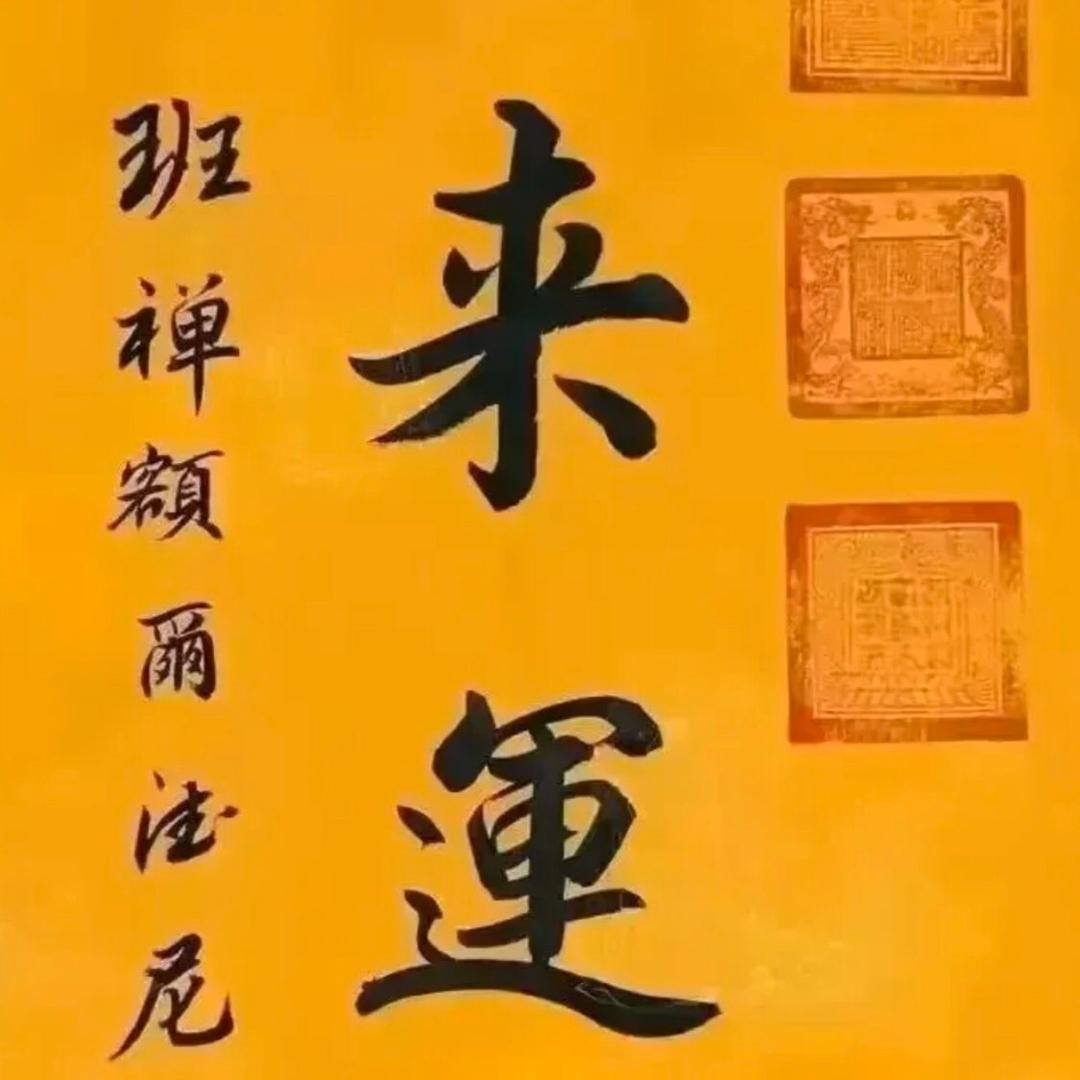 来運
班禅額爾德尼